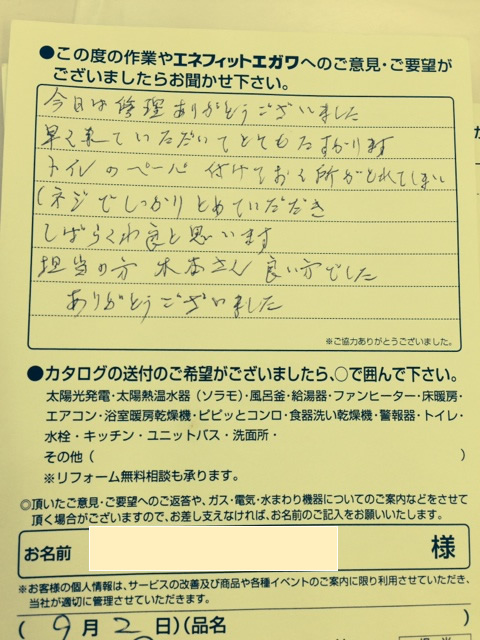 ●この度の作業やエネフィットエガワへのご意見・ご要望が
ございましたらお聞かせ下さい。
今日は修理ありがとうございました
早く来ていただいてとてもたすかります
トイレのペーパー付けておく所がとれてしまい
(ネジでしっかりとめていただき
しばらくわ良と思います
担当の方 木本さん 良い方でした
ありがとうございました
※ご協力ありがとうございました。
●カタログの送付のご希望がございましたら、○で囲んで下さい。
太陽光発電・太陽熱温水器(ソラモ)・風呂釜・給湯器・ファンヒーター・床暖房・
エアコン・浴室暖房乾燥機・ピピッとコンロ・食器洗い乾燥機・警報器・トイレ・
水栓・キッチン・ユニットバス・洗面所・
その他( )
※リフォーム無料相談も承ります。
◎頂いたご意見・ご要望へのご返答や、ガス・電気・水まわり機器についてのご案内などをさせて
頂く場合がございますので、お差し支えなければ、お名前のご記入をお願いいたします。
お名前 様
※お客様の個人情報は、サービスの改善及び商品や各種イベントのご案内に限り利用させていただき、
当社が適切に管理させていただきます。
(9月2日)(品名